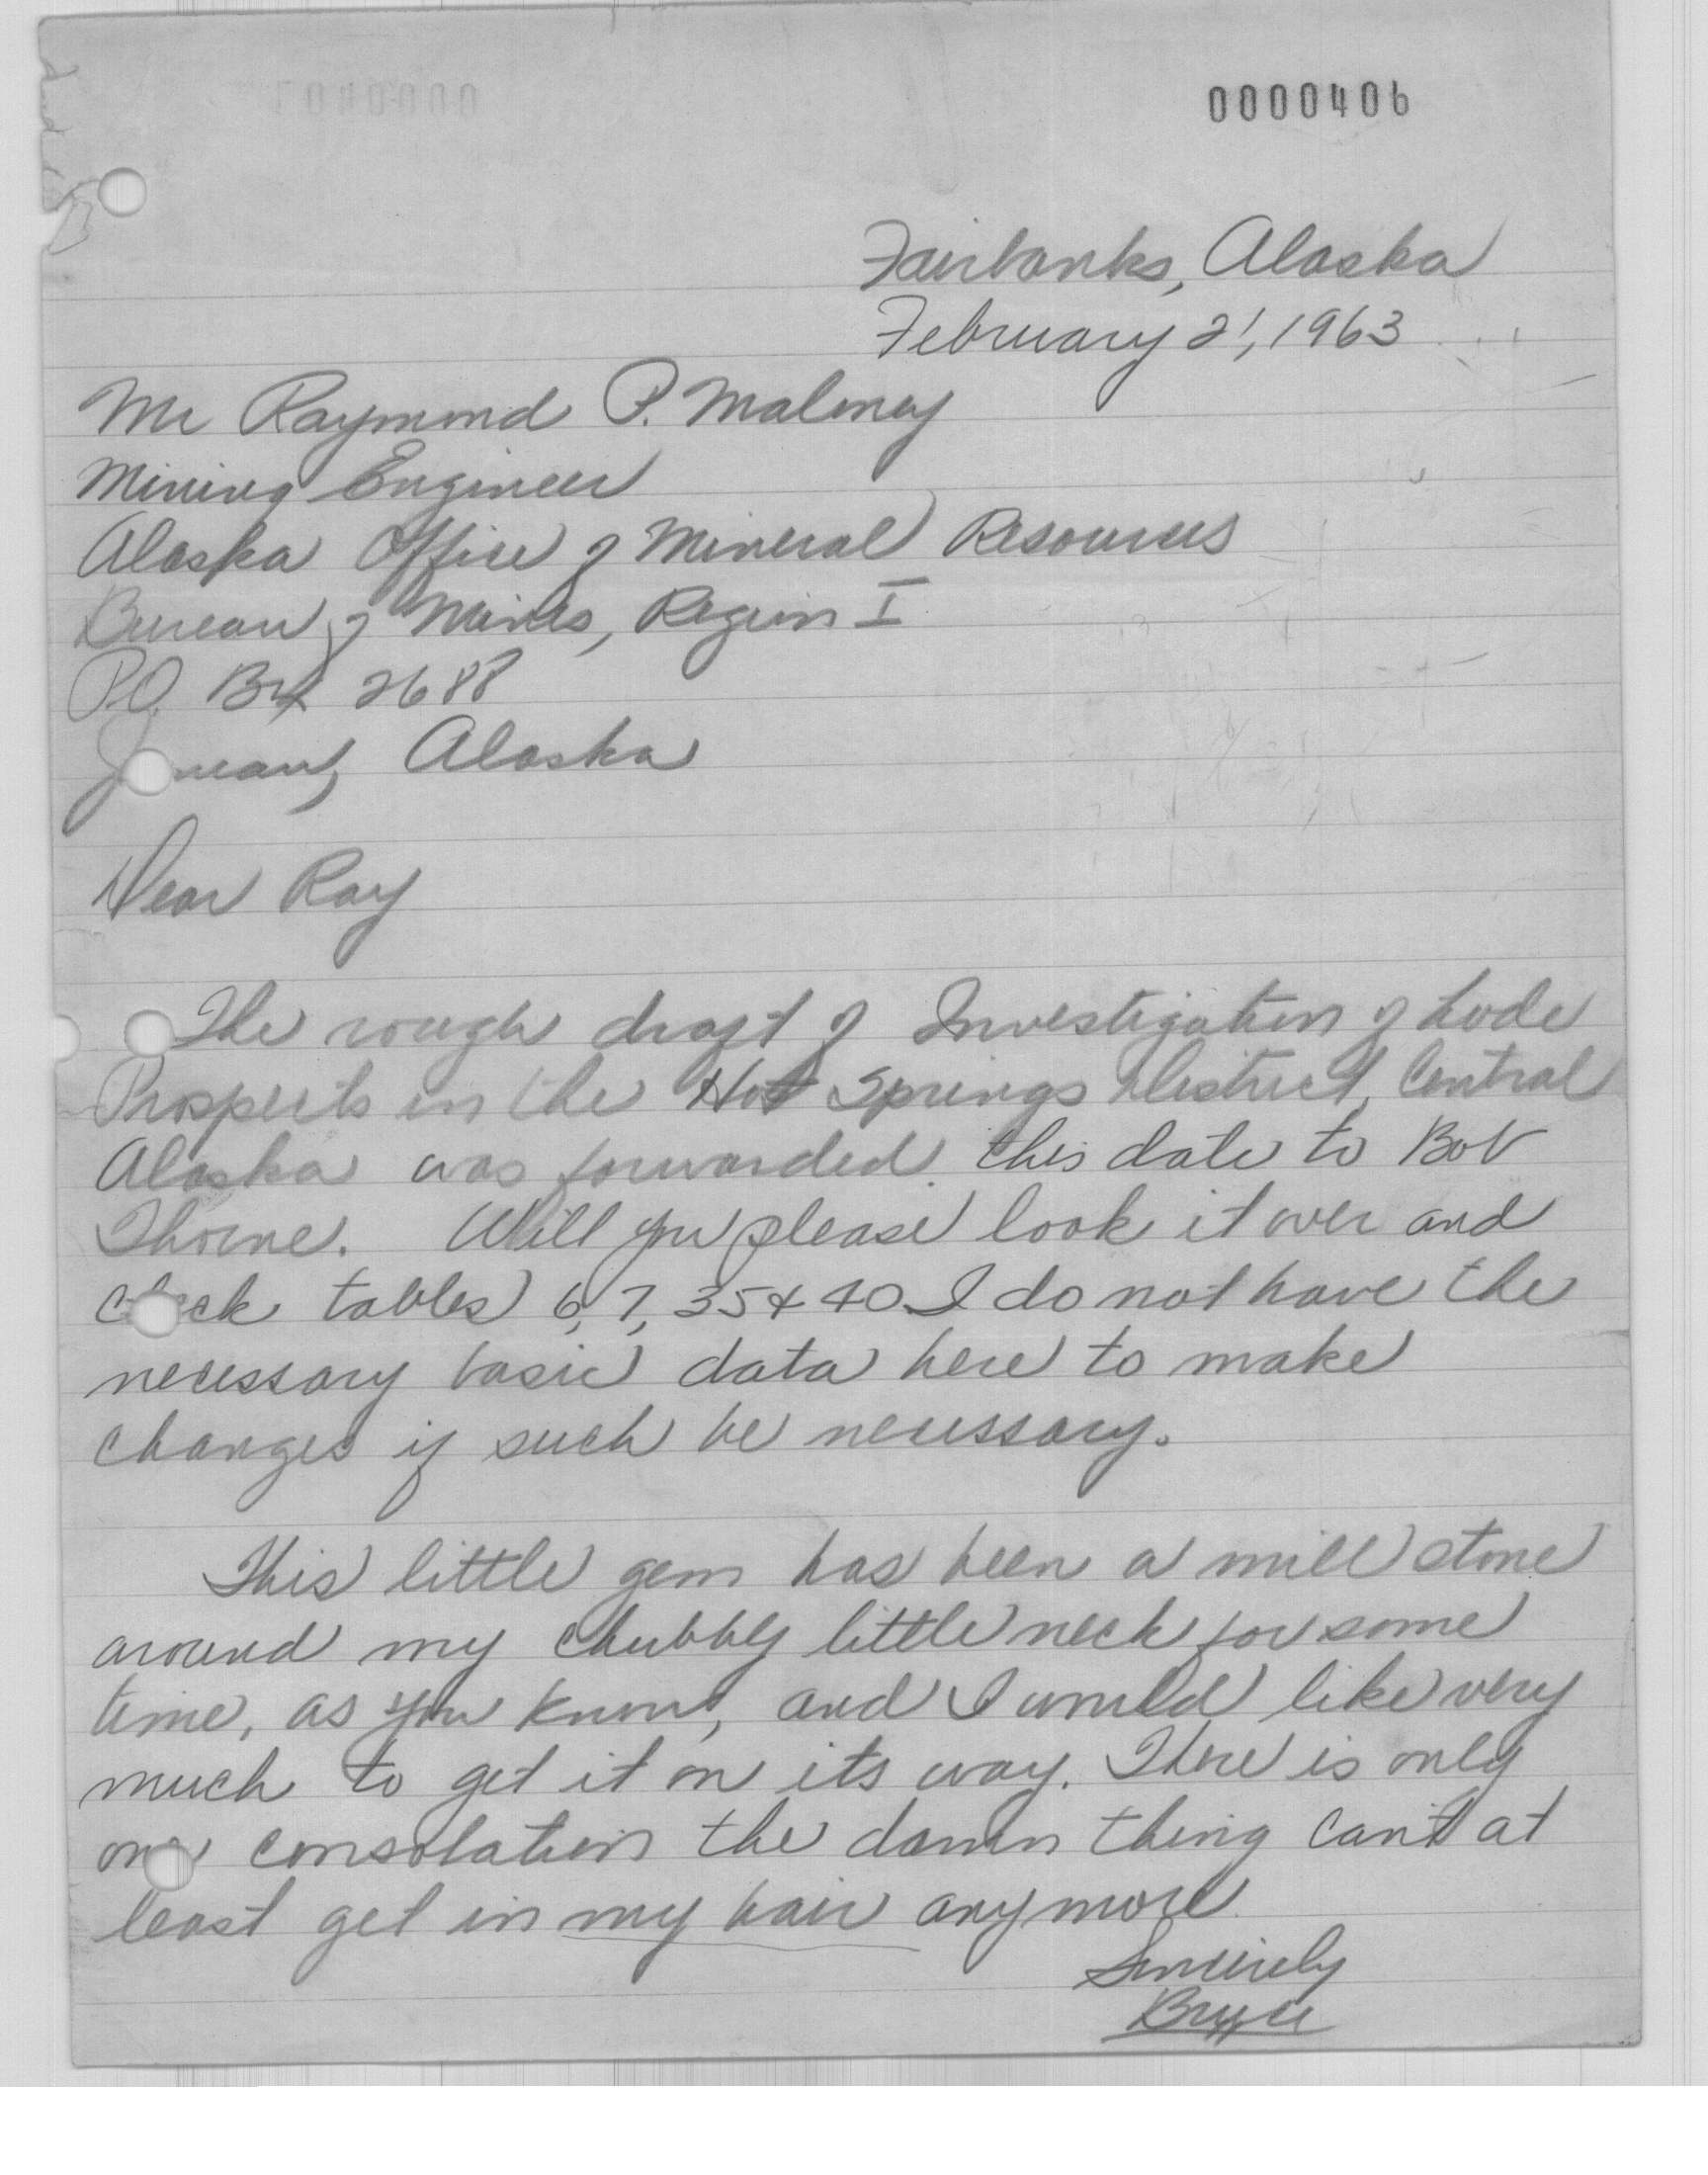 0000406
Fairbanks, Alaska
February 21, 1963
Mr Raymond P. Maloney
Mining Engineer
Alaska Office of Mineral Resources
Bureau of Mines, Region I
P.O. Box 2688
Juneau, Alaska
Dear Ray
The rough draft of Investigation of Lode
Prospects in the Hot Springs District, Central
Alaska was forwarded this date to Bob
Thorne. Will you please look it over and
check tables 6, 7, 35 & 40 I do not have the
necessary basic data here to make
changes if such be necessary.
This little gem has been a mill stone
around my chubby little neck for some
time, as you know, and I would like very
much to get it on its way. There is only
one consolation the damn thing can't at
least get in my hair anymore
Sincerely